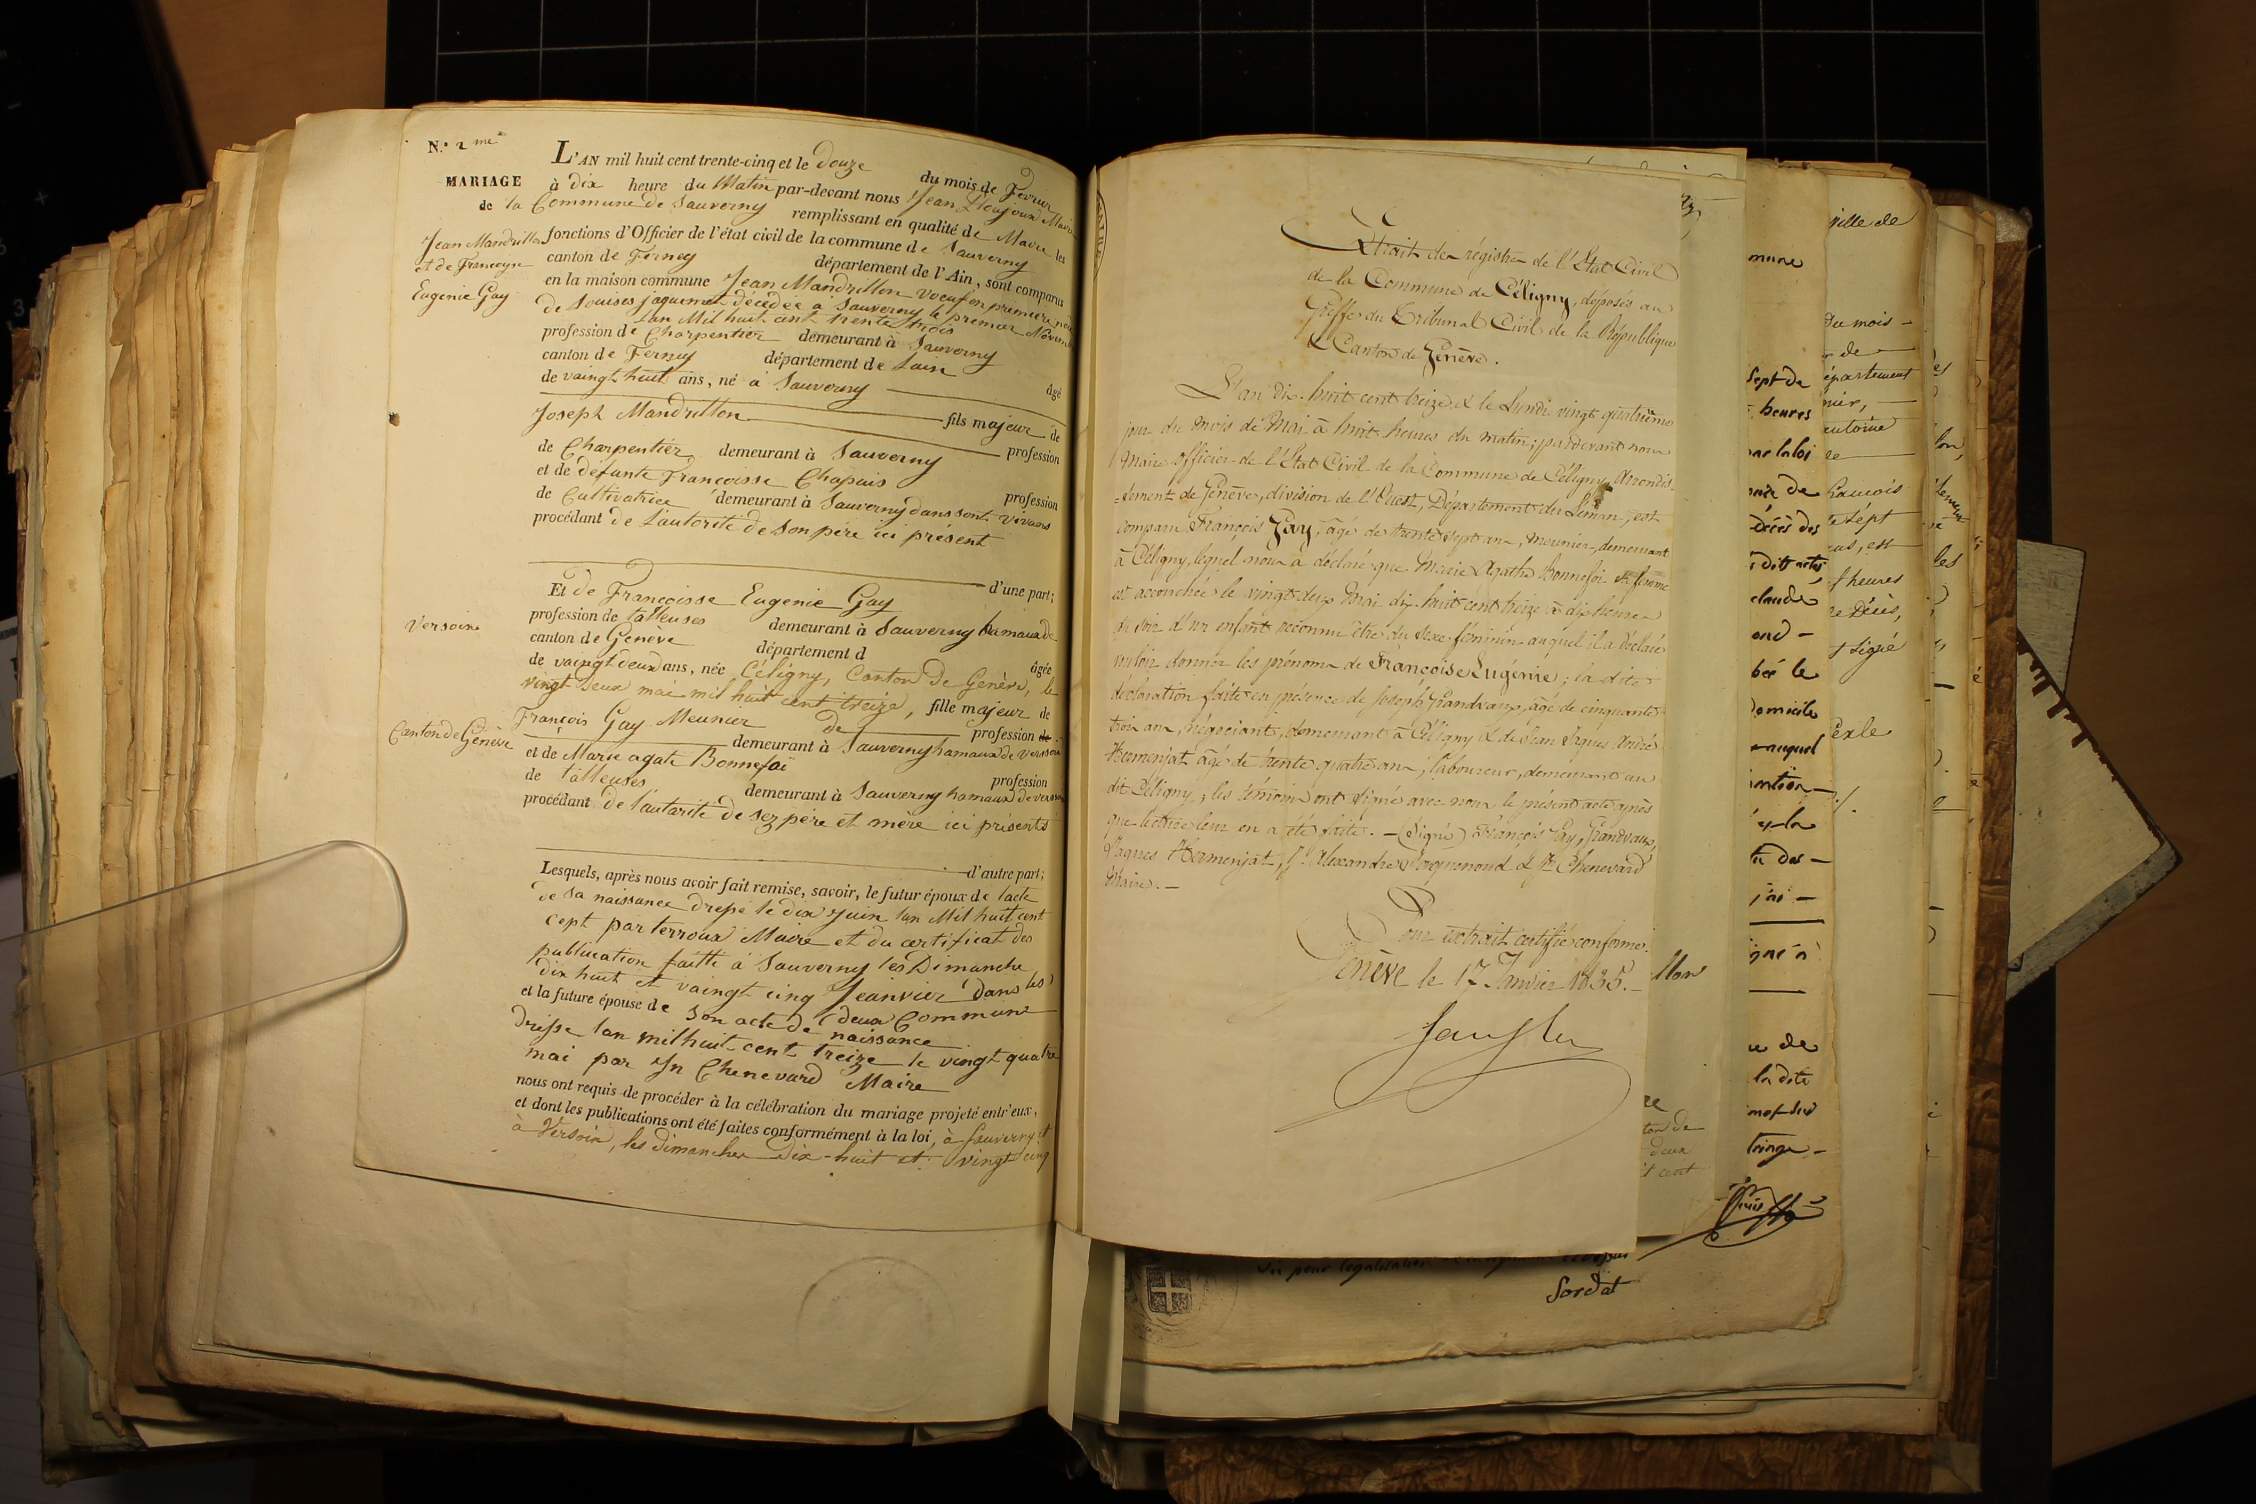 N.º 2 me
MARIAGE
de
Jean Mandrillon
et de Françoyse
Eugenie Gay
L'AN mil huit cent trente-cinq et le douze du mois de Fevrier
à dix heure du Matin par-devant nous Jean Maire
de la Commune de Sauverny remplissant en qualité de Maire les
fonctions d'Officier de l'état civil de la commune de Sauverny
canton de Ferney département de l'Ain, sont comparus
en la maison commune Jean Mandrillon voeuf en premiere
de Louises Jaquemet décédée a Sauverny le premier Novembre
lan Mil huit cent trente trois
profession de Charpentier demeurant à Sauverny
canton de Ferney département de Lain
âgé
de vaingt huit ans, né à Sauverny
fils majeur de
Joseph Mandrillon
profession
de Charpentier demeurant à Sauverny
et de defunte Françoisse Chapuis
profession
de Cultivatrice demeurant à Sauverny dans sont vivans
procédant de L'autorité de son père ici présent
d'une part;
Et de Françoisse Eugenie Gay
profession de talleuses demeurant à Sauverny hamaux de
Versoix
canton de Genève département d
âgée
de vaingt deux ans, née Céligny, Canton de Genève, le
vingt deux mai mil huit cent treize, fille majeur de
François Gay Meunier de profession de
Canton de Genève
demeurant à Sauverny hamaux de Versoix
et de Marie agate Bonnefoi
profession
de talleuses demeurant à Sauverny hamaux de versoix
procédant de l'autarité de sez père et mère ici présents
d'autre part;
Lesquels, après nous avoir fait remise, savoir, le futur époux de lacte
de sa naissance drepé le dix Juin lan Mil huit cent
cept par terroux Maire et du certificat des
publication faitte à Sauverny les Dimanche
dix huit et vaingt cinq Jeanvier dans les
deux Commune
et la future épouse de son acte de naissance
drisse lan mil huit cent treize le vingt quatre
mai par Jn Chenevard Maire
nous ont requis de procéder à la célébration du mariage projeté entr'eux,
et dont les publications ont été faites conformément à la loi, à Sauverny et
à Versoix, les dimanches dix-huit et vingt cinq
Extrait des régistres de l'Etat Civil
de la Commune de Céligny, déposés au
Greffe du Tribunal Civil de la République
& Canton de Genève.
L'an dix-huit cent treize & le Lundi vingt quatrième
jour du mois de Mai à huit heures du matin; pardevant nous
Maire officier de l'Etat Civil de la Commune de Céligny, Arrondis-
=sement de Genève, division de l'Ouest, Département du Léman, est
comparu François Gay, âgé de trente sept ans, meunier, demeurant
à Céligny, lequel nous a déclaré que Marie Agathe Bonnefoi sa femme
est accouchée le vingt deux Mai dix huit cent treize à dix heures
du soir d'un enfant reconnu être du sexe féminin auquel il a déclaré
vouloir donner les prénoms de Françoise Eugénie; la dite
déclaration faite en présence de Joseph Grandvaux, âgé de cinquante
trois ans, négociant, demeurant à Céligny & de Jean Jaques André
Hermenjat âgé de trente quatre ans, laboureur, demeurant au
dit Céligny; les témoins ont signé avec nous le présent acte après
que lecture leur en a été faite. - (Signé) François Gay, Grandvaux,
Jaques Hermenjat, Alexandre & Chenevard
Maire. -
Pour extrait certifié conforme.
Genève le 17 Janvier 1835. -
llon
ville de
mune
du mois -
de
sept de
épartement
heures
par la loi
François
sept
décès des
dits actes
est
claude
heures
Décès,
bré le
signé
Domicile
auquel
les
la dite
Sordat